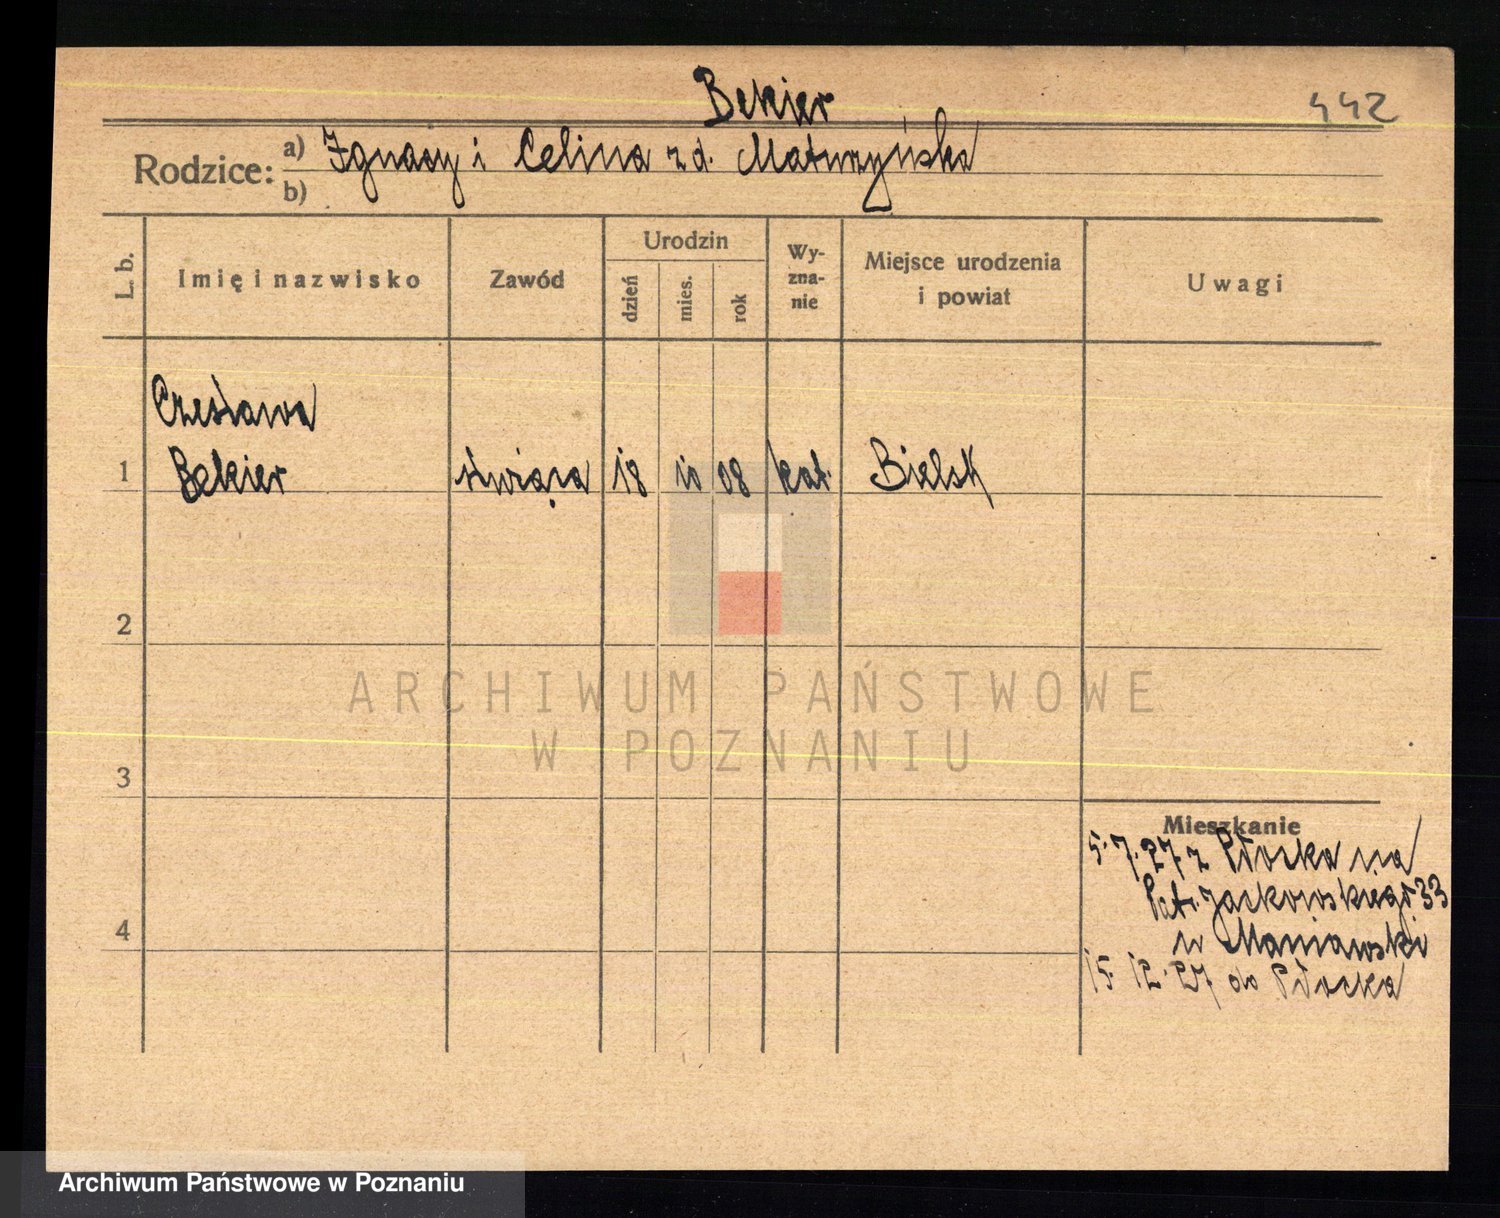 Bekier
442
Rodzice:
a) Ignacy i Celina zd. Maturzyńska
b)
L. b.
Imię i nazwisko
Zawód
Urodzin
dzień
mies.
rok
Wy-
zna-
nie
Miejsce urodzenia
i powiat
Uwagi
Czesława
1 Bekier służąca 18 10 08 kat. Bielsk
2
3
4
Mieszkanie
5.7.27 z Płocka na
Patr. Jackowskiego 33
u Maniawski
15.12.27 do Płocka
ARCHIWUM PAŃSTWOWE
W POZNANIU
Archiwum Państwowe w Poznaniu